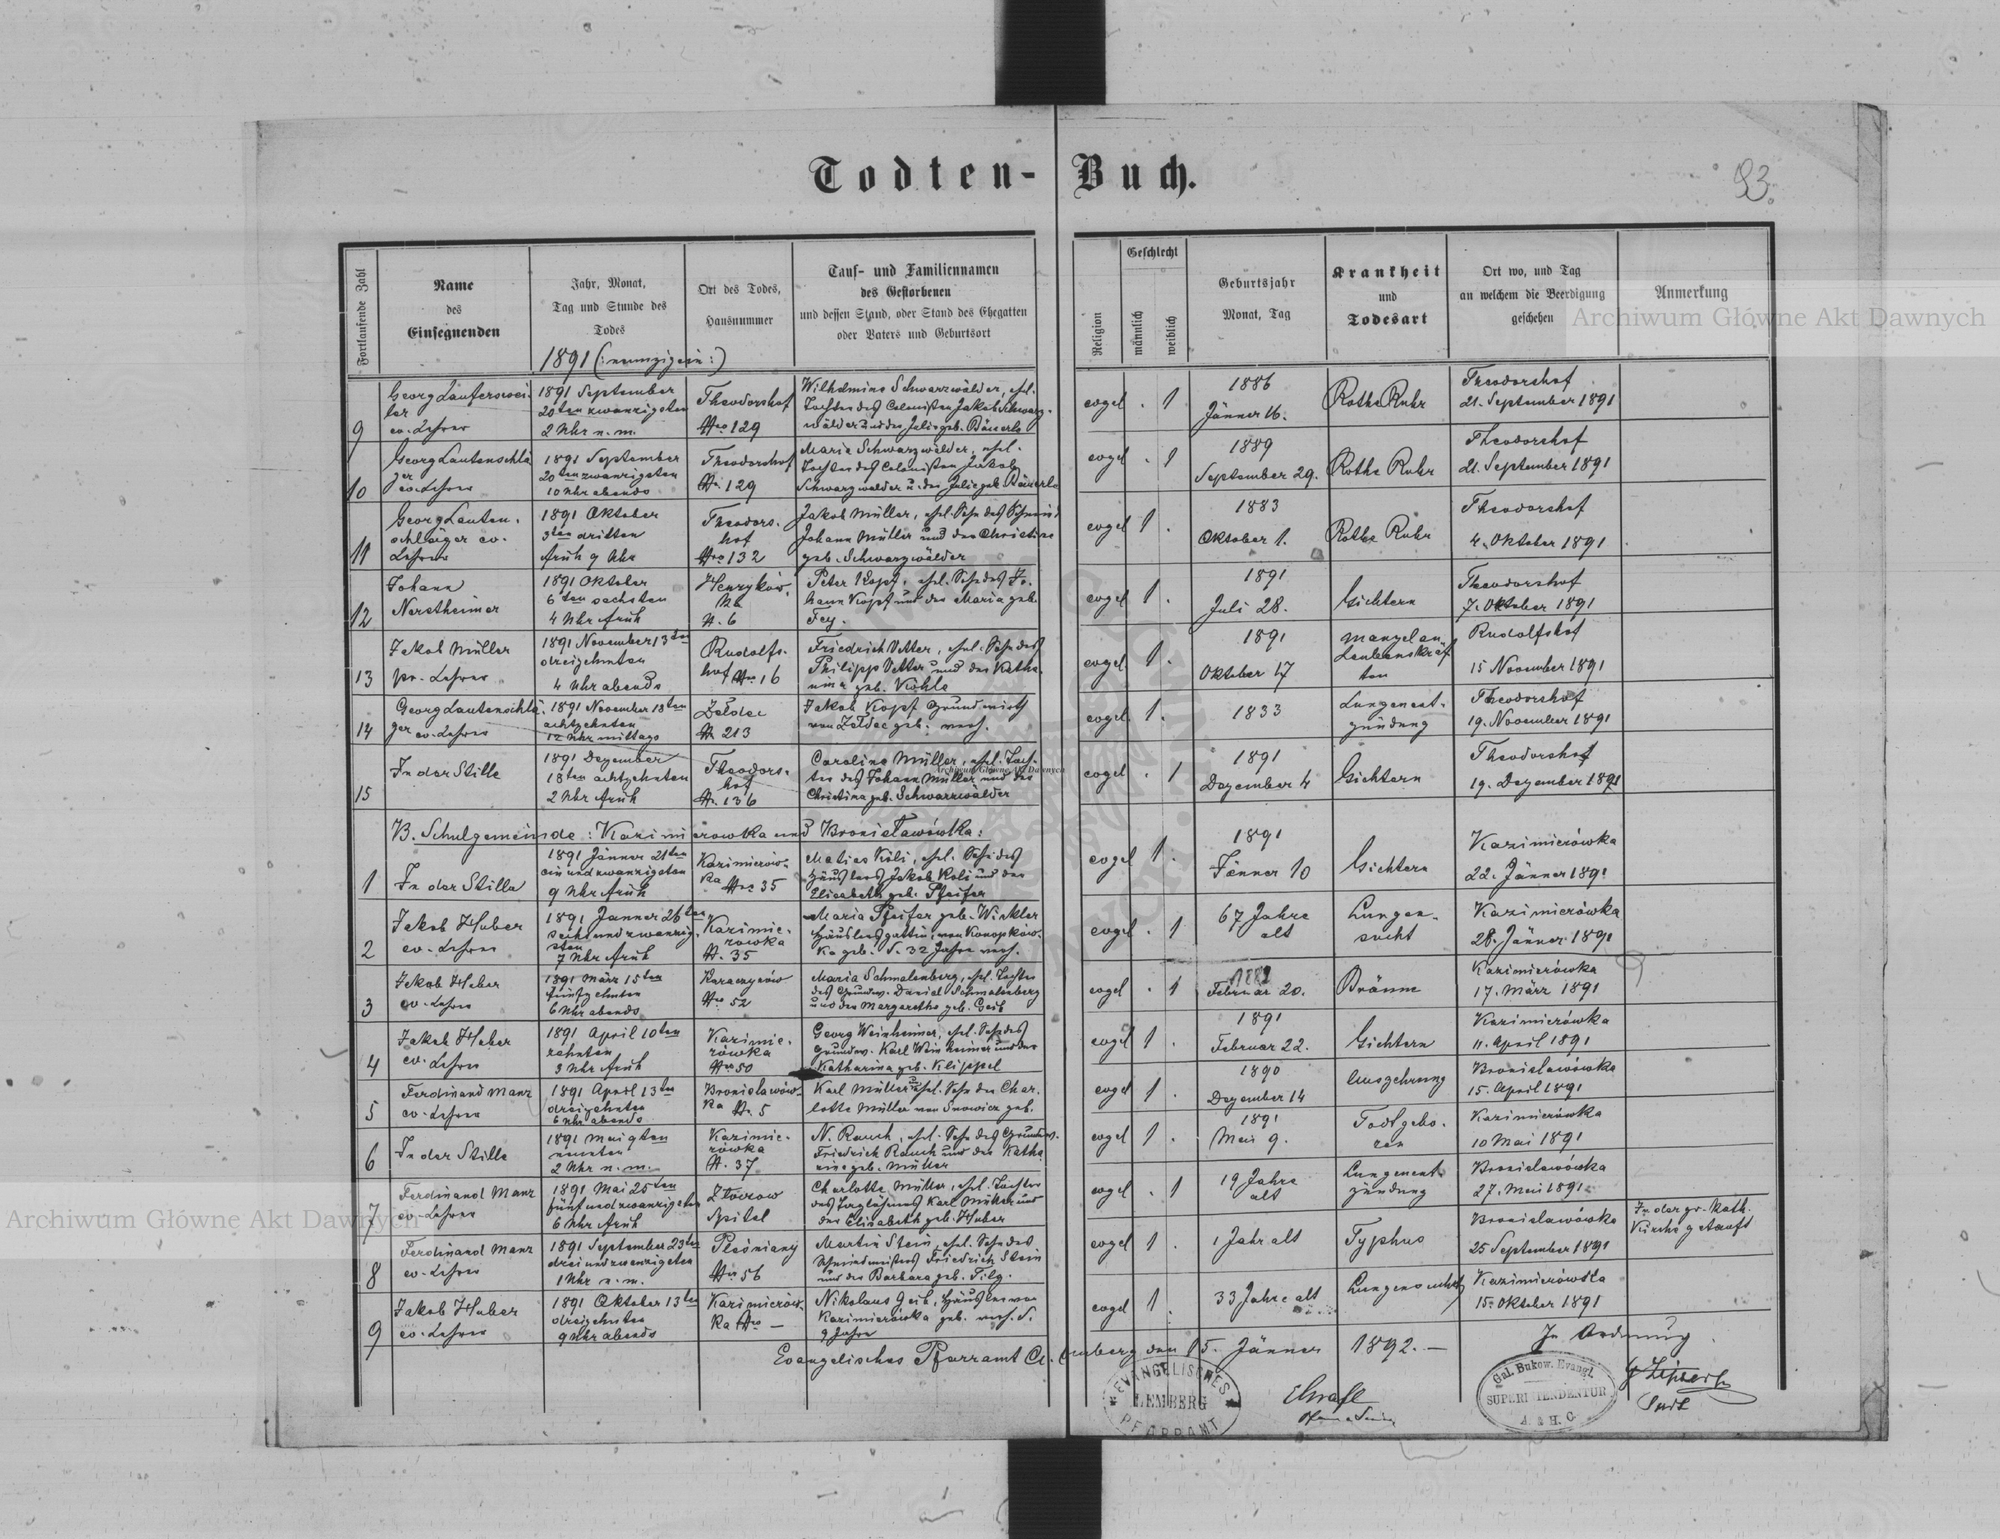 Todten-Buch.
93.
Fortlaufende Zahl
Name
des
Einsegnenden
Jahr, Monat,
Tag und Stunde des
Todes
Ort des Todes,
Hausnummer
Tauf- und Familiennamen
des Gestorbenen
und dessen Stand, oder Stand des Ehegatten
oder Vaters und Geburtsort
Religion
Geschlecht
männlich
weiblich
Geburtsjahr
Monat, Tag
Krankheit
und
Todesart
Ort wo, und Tag
an welchem die Beerdigung
geschehen
Anmerkung
Archiwum Główne Akt Dawnych
1891 (:neunzigein:)
9
ev. Lehrer
1891 September
20ten zwanzigsten
2 Uhr n. m.
Theodorshof
Nro 129
Wilhelmine Schwarzwälder, ehel.
Tochter des Colonisten Jakob Schwarz-
wälder und der Julie geb. Bäuerle
evgel. . 1
1886
Jänner 16.
Rothe Ruhr
Theodorshof
21. September 1891
10
Georg Lautenschlä
ger
ev. Lehrer
1891 September
20ten zwanzigsten
10 Uhr abends
Theodorshof
Nr. 129
Maria Schwarzwälder, ehel.
Tochter des Colonisten Jakob
Schwarzwälder u. der Julie geb. Bäuerle
evgel . 1
1889
September 29.
Rothe Ruhr
Theodorshof
21. September 1891
11
Georg Lauten-
schläger ev.
Lehrer
1891 Oktober
3ten dritten
früh 9 Uhr
Theodors-
hof
Nro 132
Jakob Müller, ehel. Sohn des Schmied
Johann Müller und der Christine
geb. Schwarzwälder
evgel 1 .
1883
Oktober 1.
Rothe Ruhr
Theodorshof
4. Oktober 1891
12
Johann
Nerstheimer
1891 Oktober
6ten sechsten
4 Uhr früh
Henryków-
ka
N. 6
Peter Kopf, ehel. Sohn des Jo-
hann Kopf und der Maria geb.
Fey.
evgel 1 .
1891
Juli 28.
Gichtern
Theodorshof
7. Oktober 1891
13
Jakob Müller
pr. Lehrer
1891 November 13ten
dreizehnten
4 Uhr abends
Rudolfs-
hof Nr. 16
Friedrich Vetter, ehel. Sohn des
Philipp Vetter und der Katha-
rina geb. Köhle
evgel 1 .
1891
Oktober 17
Mangel an
Lebenskräf
ten
Rudolfshof
15 November 1891
14
Georg Lautenschlä-
ger ev. Lehrer
1891 November 18ten
achtzehnten
12 Uhr mittags
Żełdec
Nr. 213
Jakob Kopf Grundwirth
von Żełdec geb. verh.
evgel 1 .
1833
Lungenent-
zündung
Theodorshof
19. November 1891
15
In der Stille
1891 Dezember
18ten achtzehnten
2 Uhr früh
Theodors-
hof
Nr. 136
Caroline Müller, ehel. Toch-
ter des Johann Müller und der
Christina geb. Schwarzwälder
evgel . 1
1891
Dezember 4
Gichtern
Theodorshof
19. Dezember 1891
Archiwum Główne Akt Dawnych
B. Schulgemeinde: Kazimierowka und Bronisławówka:
1
In der Stille
1891 Jänner 21ten
ein und zwanzigsten
9 Uhr früh
Kazimierów-
ka Nro 35
Matias Köli, ehel. Sohn des
Häuslers Jakob Koli und der
Elisabeth geb. Pfeifer
evgel 1 .
1891
Jänner 10
Gichtern
Kazimierówka
22. Jänner 1891
2
Jakob Huber
ev. Lehrer
1891 Jänner 26ten
sechs und zwanzig-
sten
7 Uhr früh
Kazimie-
rowka
N. 35
Maria Pfeifer geb. Winkler
Häuslersgattin, von Konopków-
ka geb. d. 32 Jahre verh.
evgel . 1
67 Jahre
alt
Lungen-
sucht
Kazimierówka
28. Jänner 1891
3
Jakob Huber
ev. Lehrer
1891 März 15ten
fünfzehnten
6 Uhr abends
Koraczynów
Nro 52
Maria Schmalenberg, ehel. Tochter
des Grundw. Daniel Schmalenberg
und der Margaretha geb. Geib
evgel . 1
1882
Februar 20.
Bräune
Kazimierówka
17. März 1891
4
Jakob Huber
ev. Lehrer
1891 April 10ten
zehnten
3 Uhr früh
Kazimie-
rówka
Nro 50
Georg Weinheimer, ehel. Sohn des
Grundw. Karl Weinheimer und der
Katharina geb. Klippel
evgel 1 .
1891
Februar 22.
Gichtern
Kazimierówka
11. April 1891
5
Ferdinand Manz
ev. Lehrer
1891 April 13ten
dreizehnten
6 Uhr abends
Bronislawów-
ka Nr. 5
Karl Müller unehel. Sohn der Char-
lotte Müller von Snowicz geb.
evgel 1 .
1890
Dezember 14
Auszehrung
Bronislawówka
15. April 1891
6
In der Stille
1891 Mai 9ten
neunten
2 Uhr n. m.
Kazimie-
rówka
N. 37
N. Rauch, ehel. Sohn des Grundw.
Friedrich Rauch und der Katha
rina geb. Müller
evgel 1 .
1891
Mai 9.
Todtgebo-
ren
Kazimierówka
10 Mai 1891
7
Ferdinand Manz
ev. Lehrer
1891 Mai 25ten
fünf und zwanzigsten
6 Uhr früh
Złoczow
Spital
Charlotte Müller, ehel. Tochter
des Taglöhners Karl Müller und
der Elisabeth geb. Huber
evgel . 1
19 Jahre
alt
Lungenent-
zündung
Bronislawówka
27. Mai 1891
8
Ferdinand Manz
ev. Lehrer
1891 September 23ten
drei und zwanzigsten
1 Uhr n. m.
Plesniany
Nro 56
Martin Stein, ehel. Sohn des
Schmiedmeisters Friedrich Stein
und der Barbara geb. Filg.
evgel 1 .
1 Jahr alt
Typhus
Bronislawówka
25 September 1891
In der gr. kath.
Kirche getauft
9
Jakob Huber
ev. Lehrer
1891 Oktober 13ten
dreizehnten
9 Uhr abends
Kazimierów-
ka Nro —
Nikolaus Geib, Häusler von
Kazimierówka geb. verh. d.
9 Jahre
evgel 1 .
33 Jahre alt
Lungensucht
Kazimierówka
15. Oktober 1891
Archiwum Główne Akt Dawnych
Evangelisches Pfarramt Lemberg den 15. Jänner 1892. —
In Ordnung
EVANGELISCHES
LEMBERG
PFARRAMT
Gal. Bukow. Evangl.
SUPERINTENDENTUR
A. & H. C.